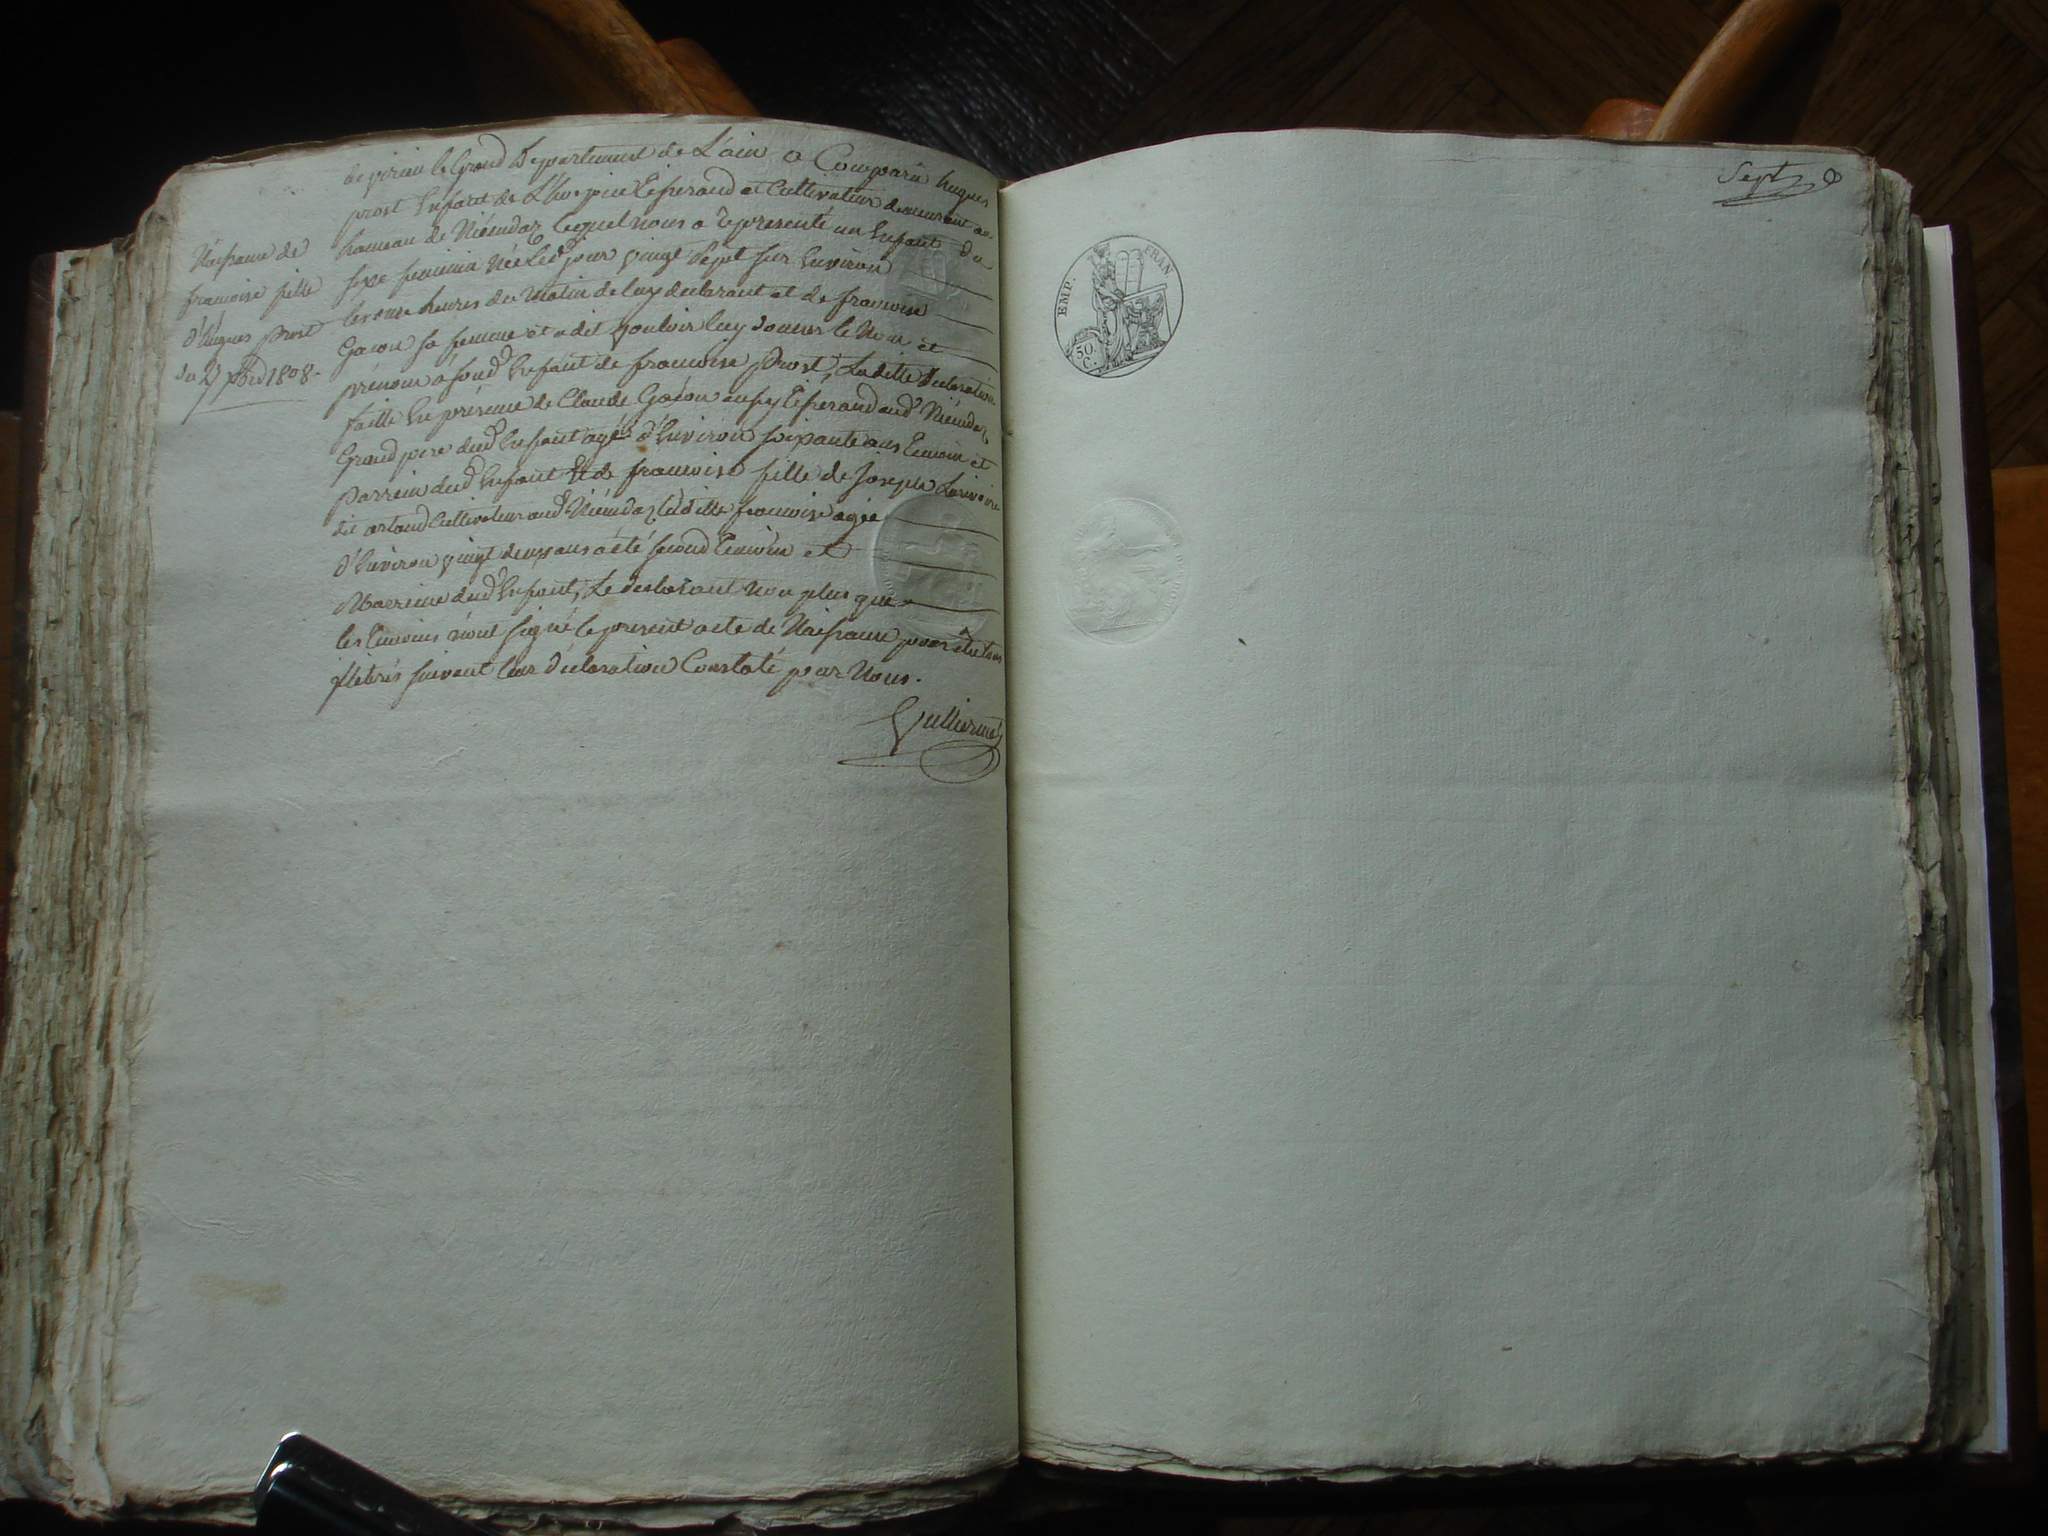 de virieu le Grand Departement de L'ain a Comparu hugues
prost Enfant de L'hospice Tisserand et Cultivateur demeurant au
hameau de Niémdaz lequel nous a représenté un Enfant du
Naissance de
francoise fille
d'hugues prost
du 27 1808.
sexe feminin Née Led jour vingt Sept sur Environ
les onze heures du Matin de luy declarant et de francoise
Gacon sa femme et a dit vouloir luy donner le Nom et
prénom a sond Enfant de francoise prost, Ladite declaration
faitte En présence de Claude Gacon aussy Tisserand aud Niémdaz
Grand pere dud Enfant agé d'Environ soixante ans Temoin et
parrein dud Enfant Et de francoise fille de Joseph Larivoire
dit artaud Cultivateur aud Niémdaz laditte francoise agée
d'Environ vingt deux ans a été second Temoin et
Marreine dud Enfant, Le declarant non plus que
les Temoins n'ont signé le present acte de Naissance pour être tous
illetrés suivant leur déclaration Constaté par Nous.
Vulliermet
Sept
EMP. FRAN
50
C.